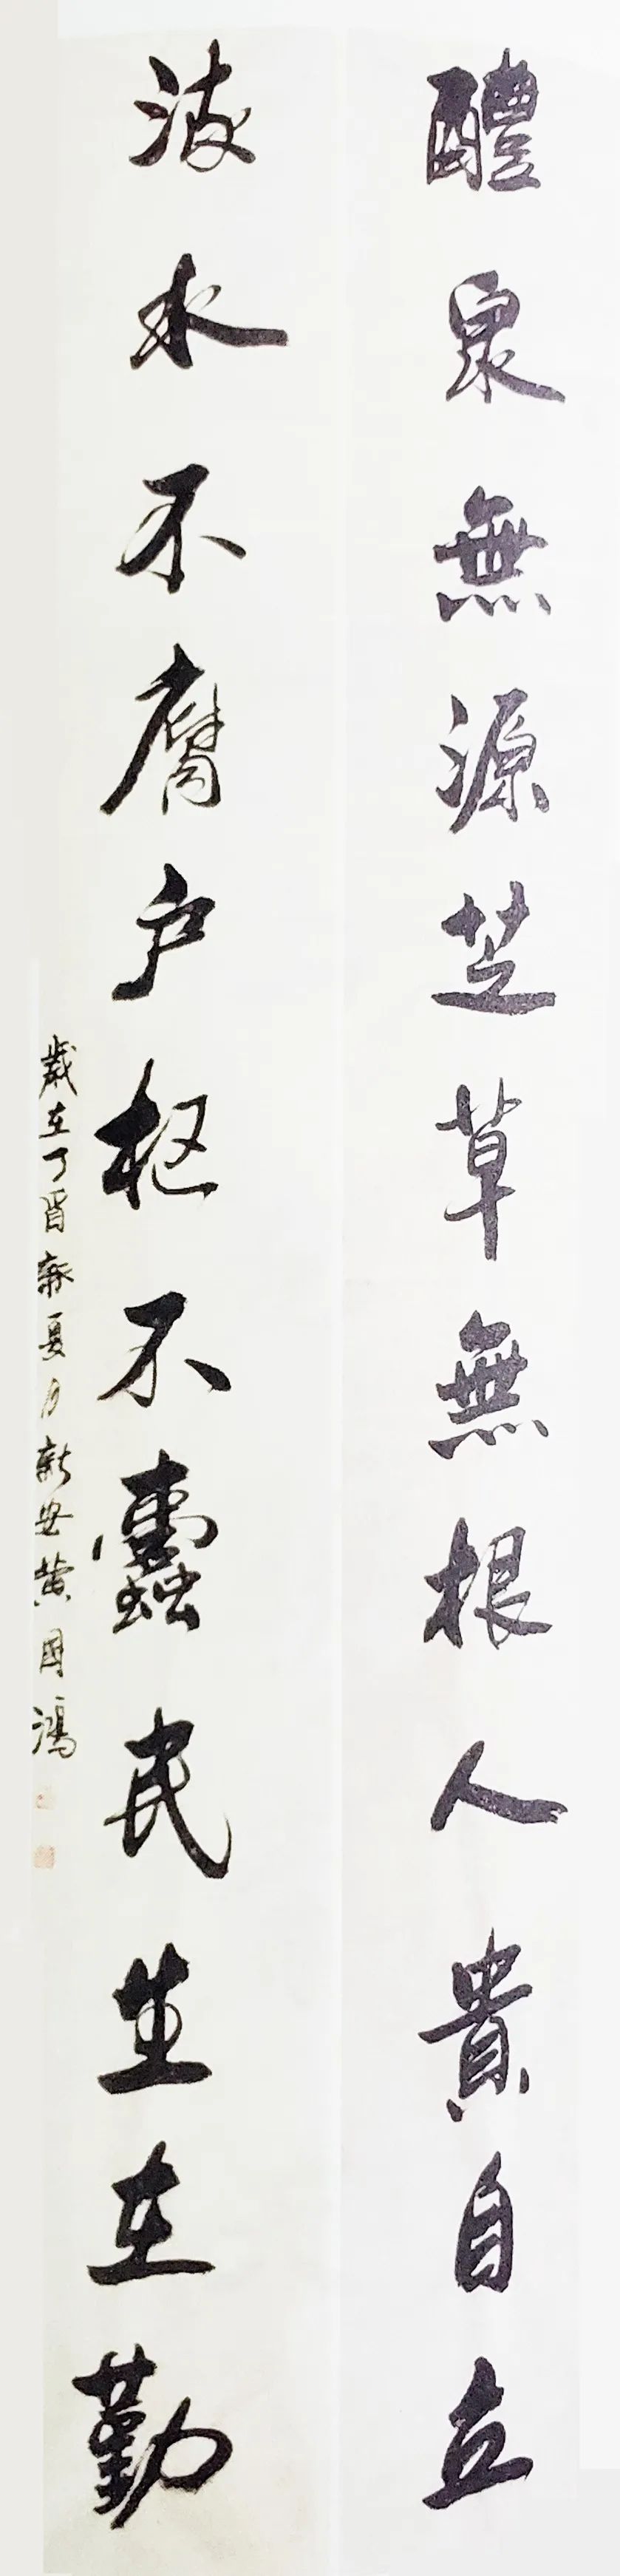 醴泉無源芝草無根人貴自立
流水不腐户枢不蠹民生在勤
歲在丁酉新夏月新安黄国鴻